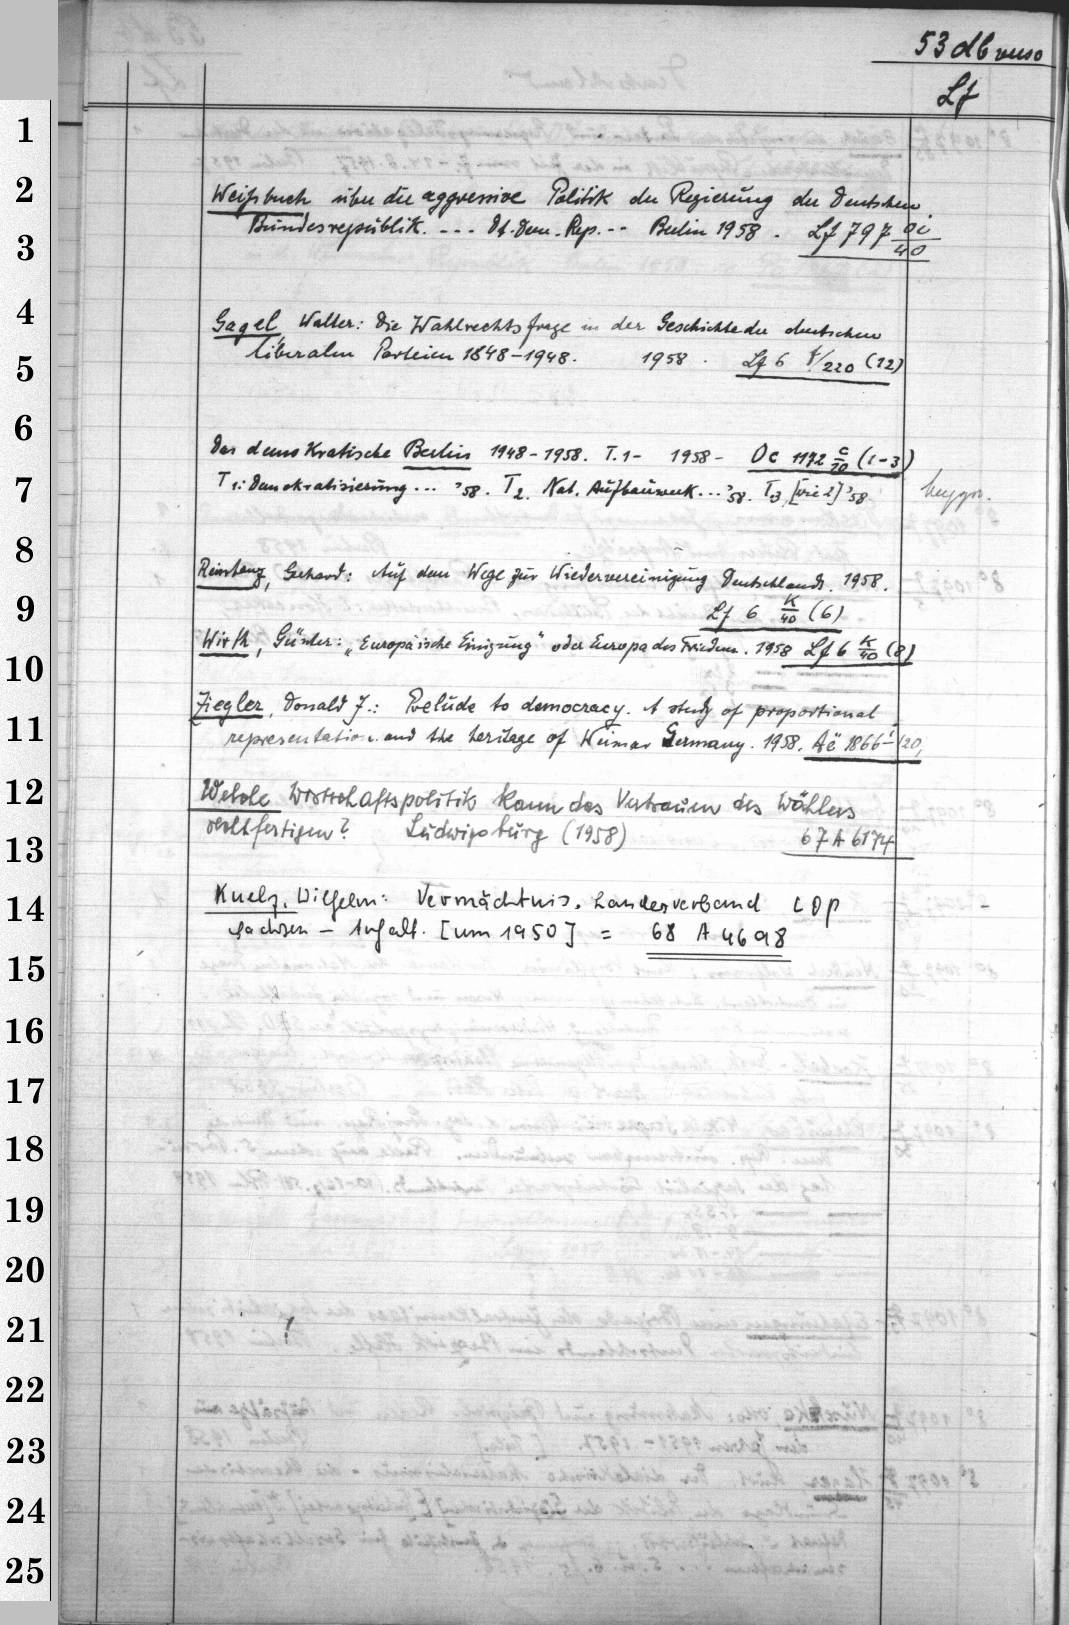 53 db verso
Lf
1
2
Weißbuch über die aggressive Politik der Regierung der Deutschen
Bundesrepublik. --- Dt. Dem. Rep. -- Berlin 1958. Lf 797 oi/40
3
4
Gagel, Walter: Die Wahlrechtsfrage in der Geschichte der deutschen
liberalen Parteien 1848-1948. 1958. Lf 6 t/220 (12)
5
6
Das demokratische Berlin 1948-1958. T.1- 1958- Oc 1172 c/20 (1-3)
7
T 1: Demokratisierung... '58. T2. Nat. Aufbauwerk... '58. T3 [wie 2] '58
8
Reintanz, Gerhard: Auf dem Wege zur Wiedervereinigung Deutschlands. 1958.
9
Lf 6 K/40 (6)
Wirth, Günter: „Europäische Einigung" oder Europa des Friedens. 1958 Lf 6 K/40 (8)
10
Ziegler, Donald J.: Prelude to democracy. A study of proportional
11
representation and the heritage of Weimar Germany. 1958. Aë 1866-120,
12
Welche Wirtschaftspolitik kann das Vertrauen des Wählers
rechtfertigen? Ludwigsburg (1958) 67 A 6174
13
14
Kuelz, Wilhelm: Vermächtnis. Landesverband LDP
Sachsen - Anhalt. [um 1950] = 68 A 4698
15
16
17
18
19
20
21
22
23
24
25